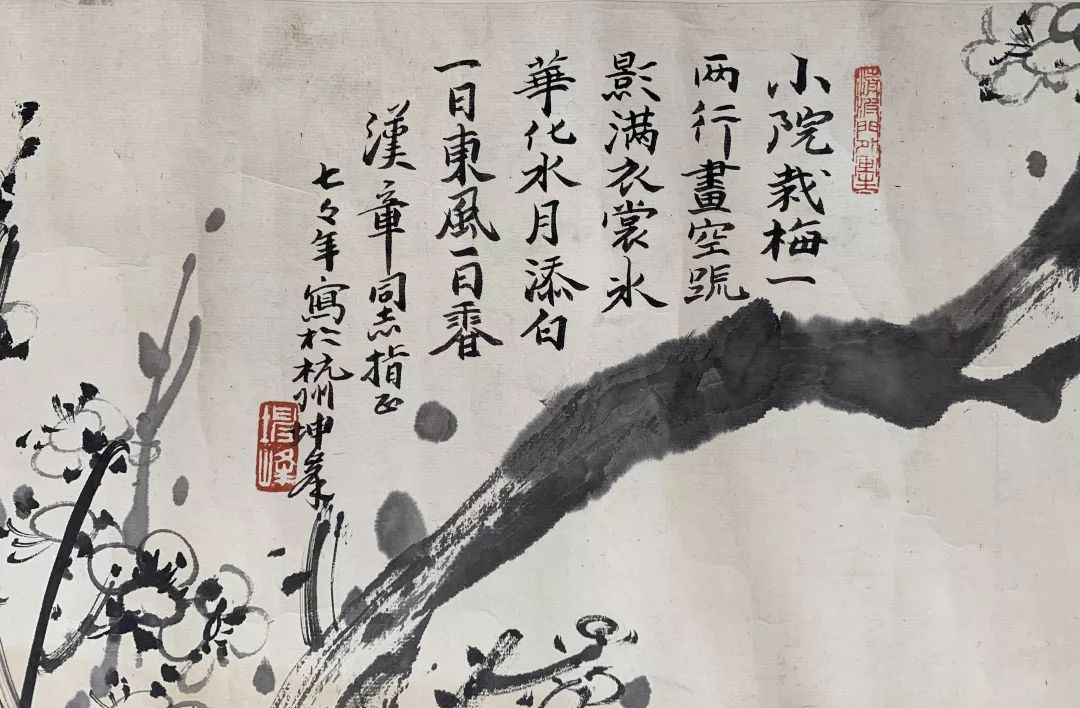 小院栽梅一
两行畫空疏
影满衣裳氷
華化水月添白
一日東風一日香
漢章同志指正
七々年寫於杭州坤峯